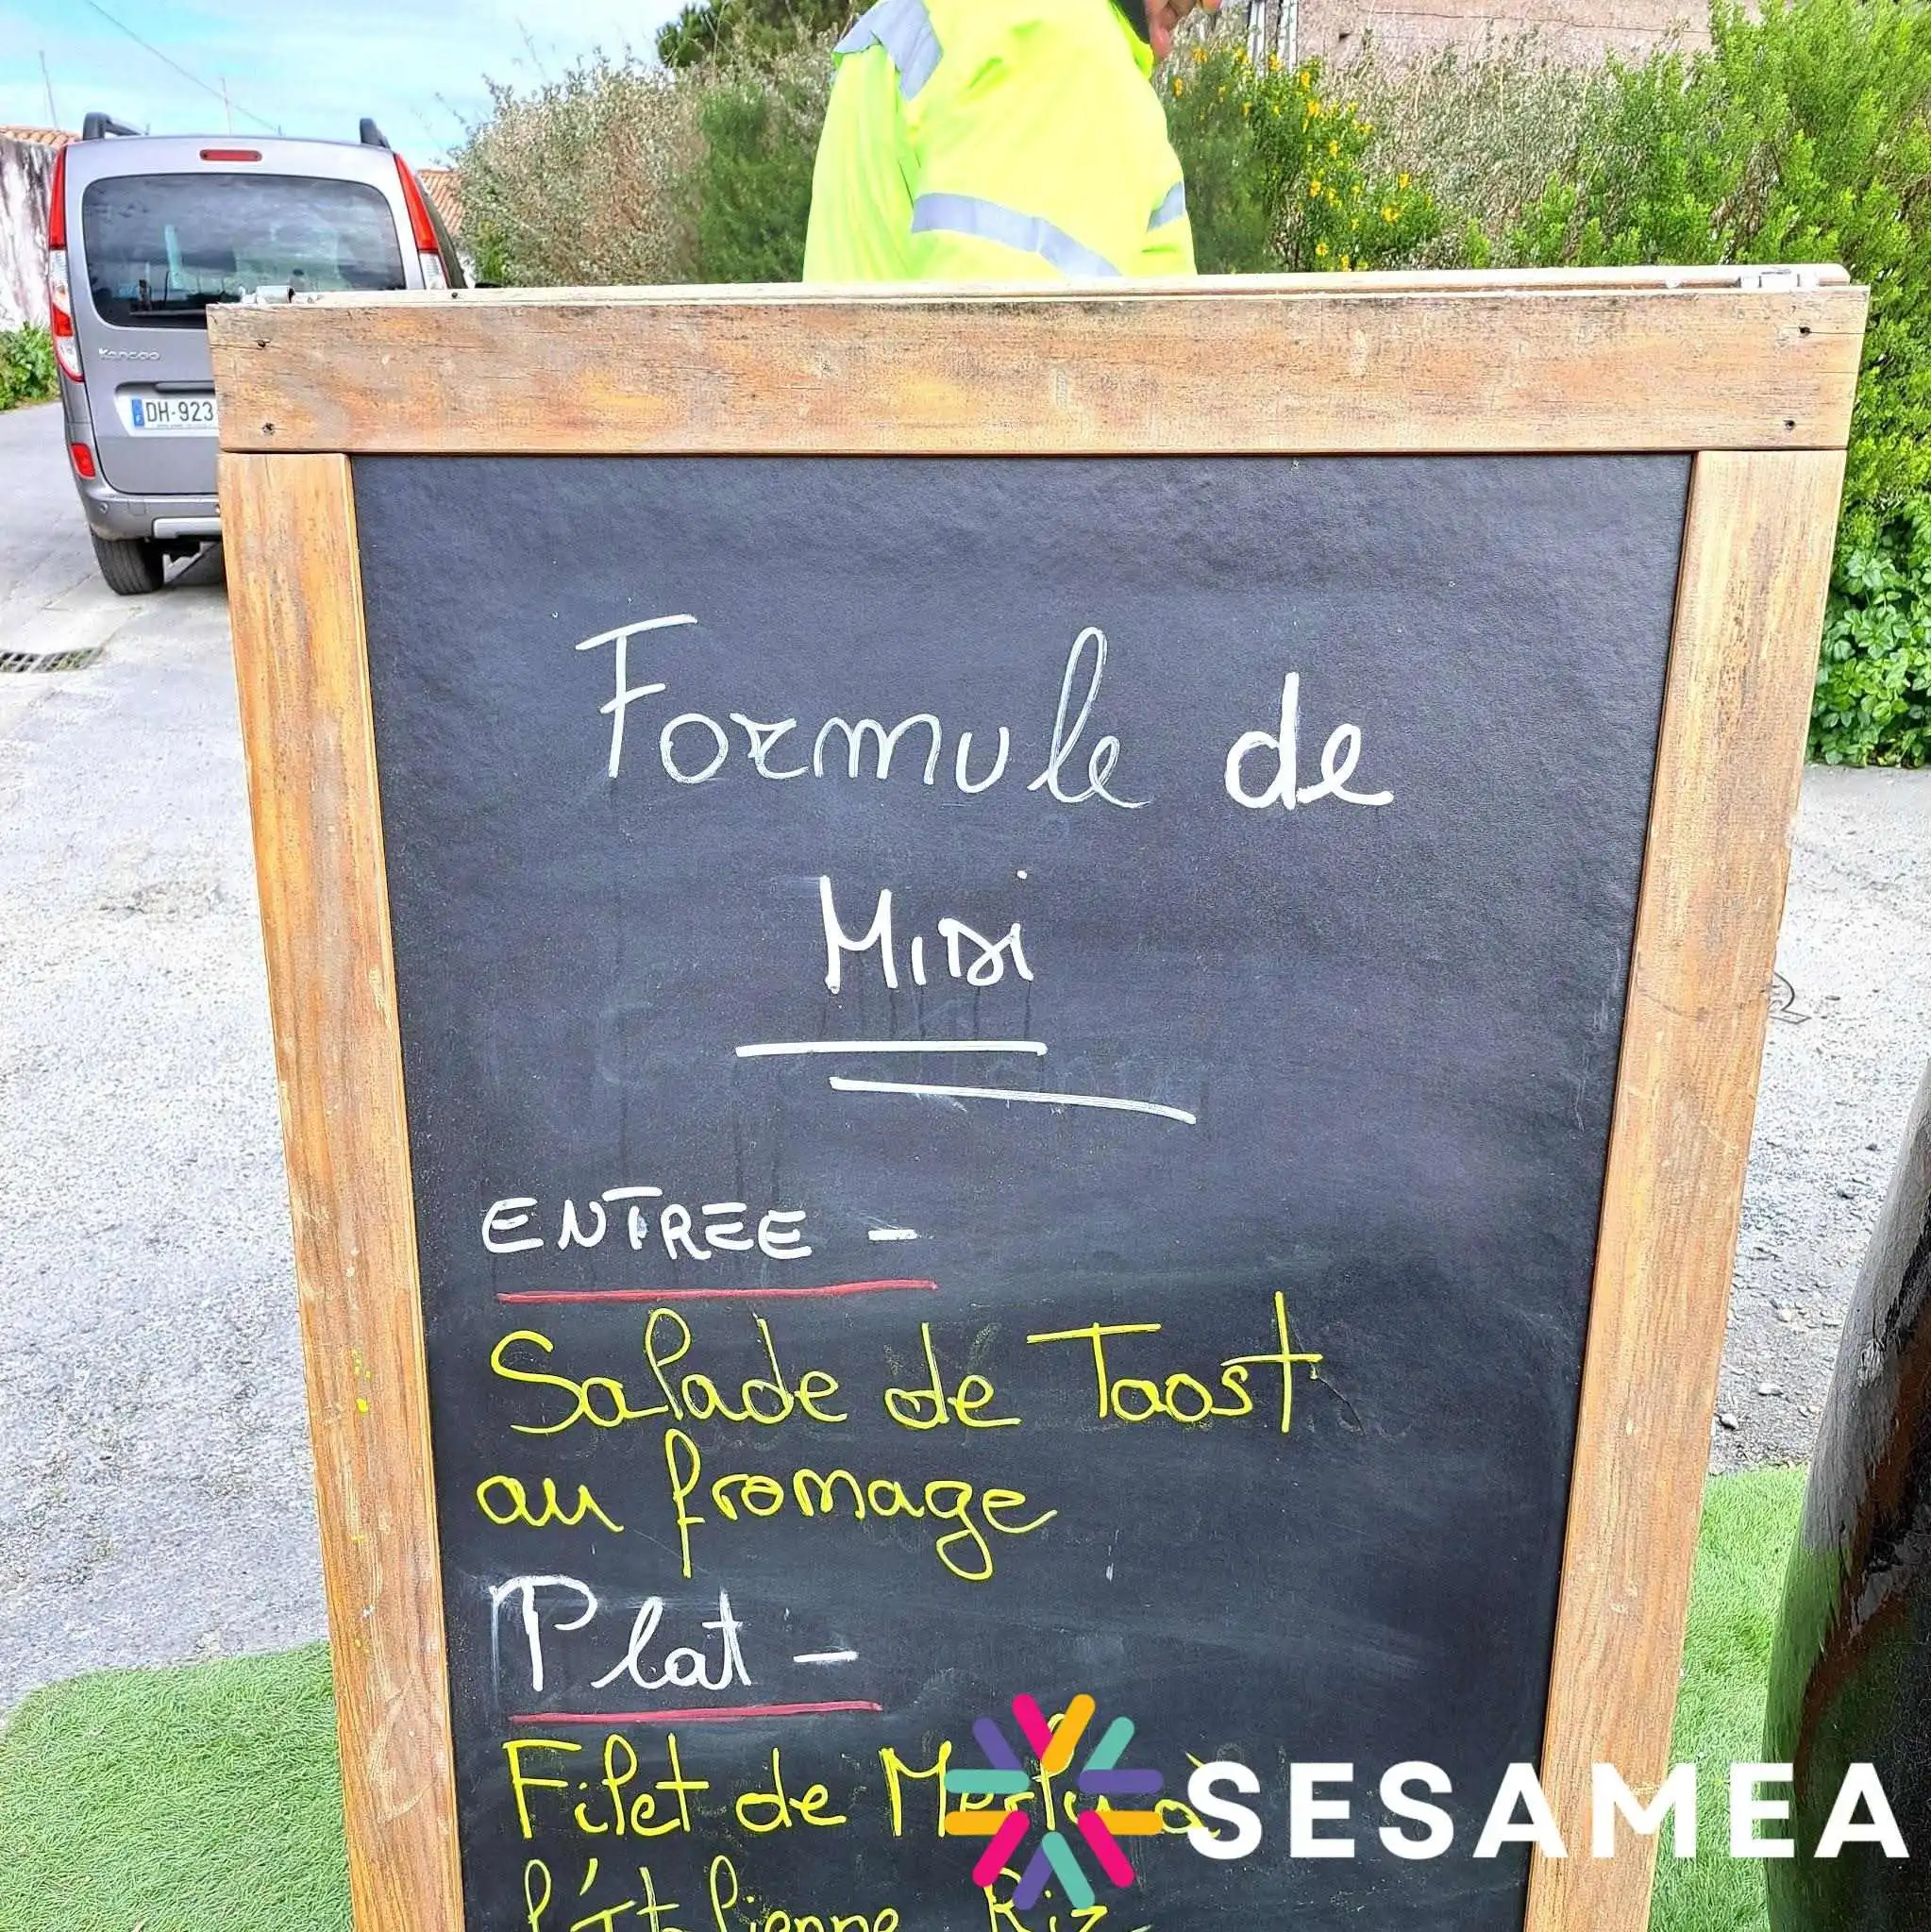 Kangoo
DH-923
Formule de
Midi
ENTREE -
Salade de Taost
au fromage
Plat -
Filet de Merlu à
l'Italienne Riz
SESAMEA